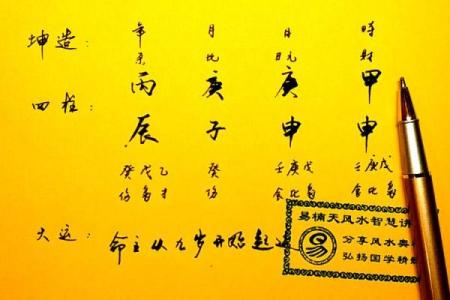 坤造： 年 月 日 時
杀 比 日元 財
丙 庚 庚 甲
四柱：
辰 子 申 申
癸戊乙 癸 壬庚戊 壬庚戊
伤枭才 伤 食比枭 食比枭
大运： 命主从九岁开始起
易楠天风水智慧讲
易 分享风水奥
弘扬国学精